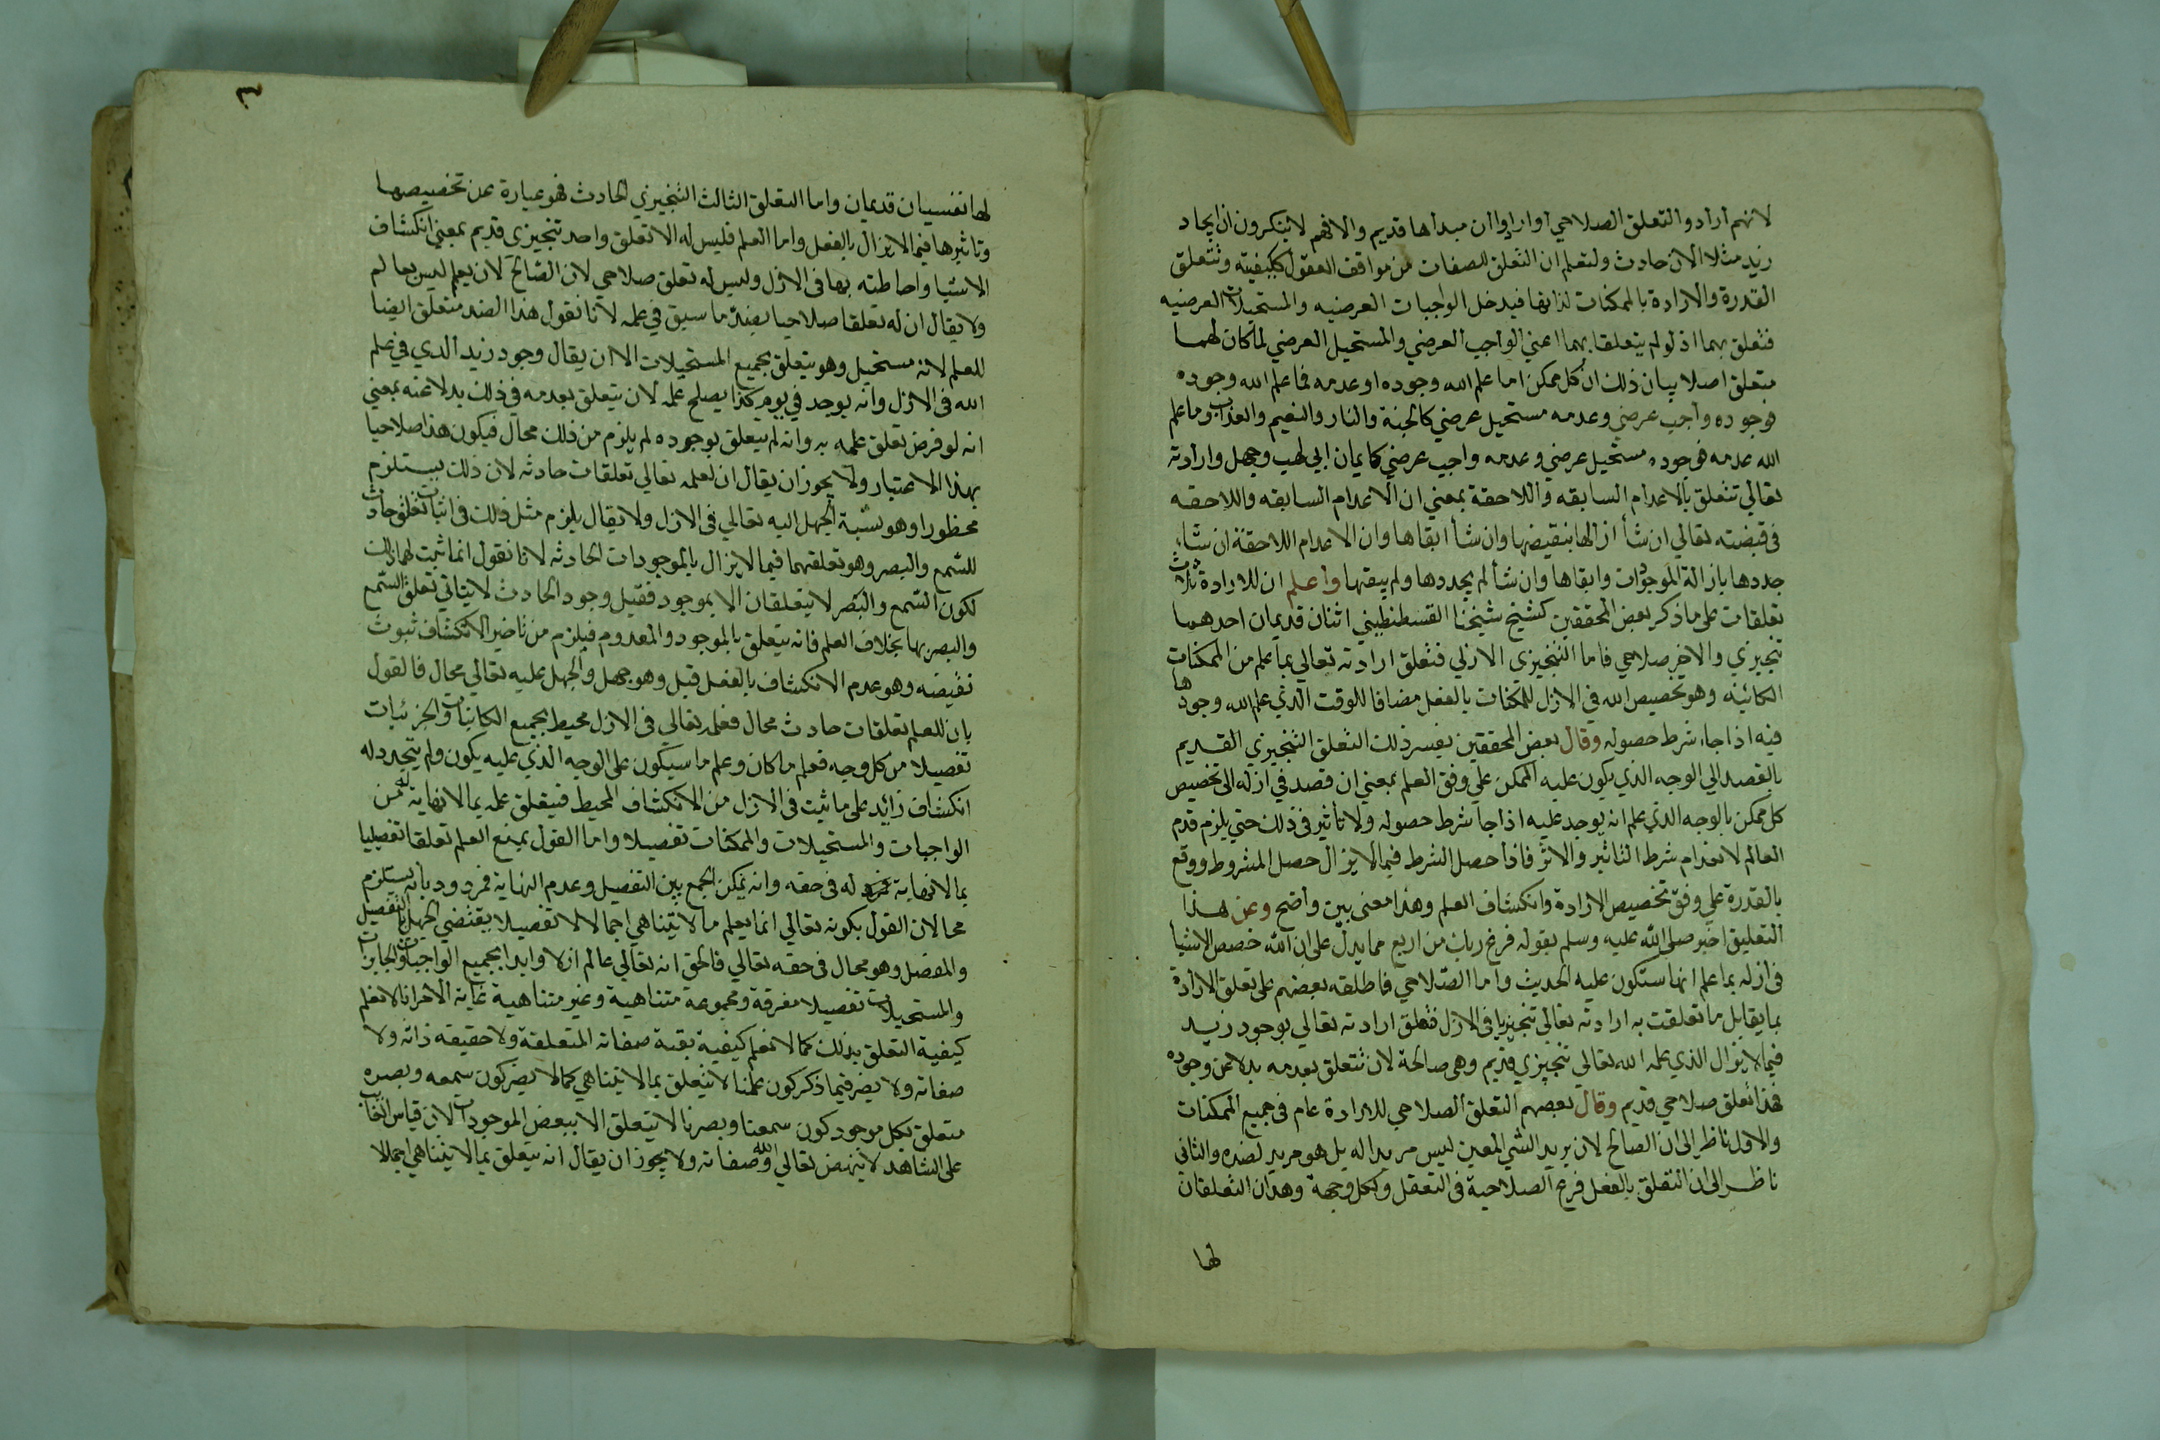 لانهم ارادوا التعلق الصلاحي او ارادوا ان مبداها قديم والا فهم لا ينكرون ان ايجاد
زيد مثلا الان حادث ولتعلم ان التعلق للصفات من مواقف العقول ككيفيته وتتعلق
القدرة والارادة بالممكنات لذاتها فيدخل الواجبات العرضيه والمستحيلات العرضيه
فتعلق بهما اذ لو لم يتعلقا بهما اعني الواجب العرضي والمستحيل العرضي لما كان لهما
متعلق اصلا بيان ذلك ان كل ممكن اما علم الله وجوده او عدمه فما علم الله وجوده
فوجوده واجب عرضي وعدمه مستحيل عرضي كالجنة والنار والنعيم والعذاب وما علم
الله عدمه فوجوده مستحيل عرضي وعدمه واجب عرضي كايمان ابي لهب وجهل وارادته
تعالي تتعلق بالاعدام السابقه واللاحقة بمعني ان الاعدام السابقه واللاحقه
في قبضته تعالي ان شأ ازالها بنقيضها وان شأ ابقاها وان الاعدام اللاحقة ان شاء
جددها بازالة الموجودات وابقاها وان شأ لم يجددها ولم يبقها واعلم ان للارادة ثلاث
تعلقات على ما ذكر بعض المحققين كشيخ شيخنا القسطنطيني اثنان قديمان احدهما
تنجيزي والاخر صلاحي فاما التنجيزي الازلي فتعلق ارادته تعالي بما علم من الممكنات
الكائنه وهو تخصيص الله في الازل للمكنات بالفعل مضافا للوقت الذي علم الله وجودها
فيه اذا جاء شرط حصوله وقال بعض المحققين يفسر ذلك التعلق التنجيزي القديم
بالقصد الي الوجه الذي يكون عليه الممكن علي وفق العلم بمعني ان قصد في ازله الى تخصيص
كل ممكن بالوجه الذي علم انه يوجد عليه اذا جا شرط حصوله ولا تاثير في ذلك حتي يلزم قدم
العالم لانعدام شرط التاثير والاثر فاذا حصل الشرط فيما لا يزال حصل المشروط ووقع
بالقدرة علي وفق تخصيص الارادة وانكشاف العلم وهذا معنى بين واضح وعن هذا
التعليق اخبر صلى الله عليه وسلم بقوله فرغ ربك من اربع مما يدل على ان الله خصص الاشيا
في ازله بما علم انها ستكون عليه الحديث واما الصلاحي فاطلقه بعضهم على تعلق الارادة
بما يقابل ما تعلقت به ارادته تعالي تنجيزيا في الازل فتعلق ارادته تعالي بوجود زيد
فيما لا يزال الذي علمه الله تعالي تنجيزي قديم وهي صالحة لان تتعلق بعدمه بدلا عن وجوده
فهذا تعلق صلاحي قديم وقال بعضهم التعلق الصلاحي للارادة عام في جميع الممكنات
والاول ناظر الى ان الصالح لان يريد الشي المعين ليس مريدا له بل هو مريد لضده والثاني
ناظر الى ان التعلق بالفعل فرع الصلاحية في التعقل وككل وجهة وهذان التعلقان
لها
لها نفسيان قديمان واما التعلق الثالث التنجيزي الحادث فهو عبارة عن تخصيصها
وتاثيرها فيما لا يزال بالفعل واما العلم فليس له الا تعلق واحد تنجيزي قديم بمعني انكشاف
الاشيا واحاطته بها في الازل وليس له تعلق صلاحي لان الصالح لان يعلم ليس بعالم
ولا يقال ان له تعلقا صلاحيا بضد ما سبق في علمه لانا نقول هذا الضد متعلق ايضا
للعلم لانه مستحيل وهو يتعلق بجميع المستحيلات الا ان يقال وجود زيد الذي في علم
الله في الازل وانه يوجد في يوم كذا يصلح علمه لان يتعلق بعدمه في ذلك بدلا عنه بمعني
انه لو فرض تعلق علمه به وانه لم يتعلق بوجوده لم يلزم من ذلك محال فيكون هذا صلاحيا
بهذا الاعتبار ولا يجوز ان يقال ان لعلمه تعالي تعلقات حادثه لان ذلك يستلزم
محظورا وهو نسبة الجهل اليه تعالي في الازل ولا يقال يلزم مثل ذلك في اثبات تعلق حادث
للسمع والبصر وهو تعلقهما فيما لا يزال بالموجودات الحادثه لانا نقول انما ثبت لهما ذلك
لكون السمع والبصر لا يتعلقان الا بموجود فقبل وجود الحادث لا يتاتي تعلق السمع
والبصر بها بخلاف العلم فانه يتعلق بالموجود والمعدوم فيلزم من تاخير الانكشاف ثبوت
نقيضه وهو عدم الانكشاف بالفعل قبل وهو جهل والجهل عليه تعالي محال فالقول
بان للعلم تعلقات حادث محال فعلمه تعالى في الازل محيط بجميع الكليات والجزئيات
تفصيلا من كل وجه فعلم ما كان وعلم ما سيكون على الوجه الذي عليه يكون ولم يتجدد له
انكشاف زائد على ما ثبت في الازل من الانكشاف المحيط فيتعلق علمه بما لا نهاية له من
الواجبات والمستحيلات والممكنات تفصيلا واما القول بمنع العلم تعلقا تفصيليا
بما لا نهاية له في حقه وانه يمكن الجمع بين التفصيل وعدم النهاية فمردود بانه يستلزم
محالا لان القول بكونه تعالي انما يعلم ما لا يتناهي اجمالا لا تفصيلا يقتضي الجهل بالتفصيل
والمفصل وهو محال في حقه تعالي فالحق انه تعالي عالم ازلا وابدا بجميع الواجبات والجايزات
والمستحيلات تفصيلا مفرقة ومجموعة متناهية وغير متناهية غاية الامر انا لا نعلم
كيفية التعلق بذلك كما لا نعلم كيفية بقية صفاته المتعلقة ولا حقيقه ذاته ولا
صفاته ولا يضر فيما ذكر كون علمنا لا يتعلق بما لا يتناهي كما لا يضر كون سمعه وبصره
متعلق بكل موجود كون سمعنا وبصرنا لا يتعلق الا ببعض الموجودات لان قياس الغايب
على الشاهد لا ينهض تعالي الله وصفاته ولا يجوز ان يقال انه يتعلق بما لا يتناهي اجمالا